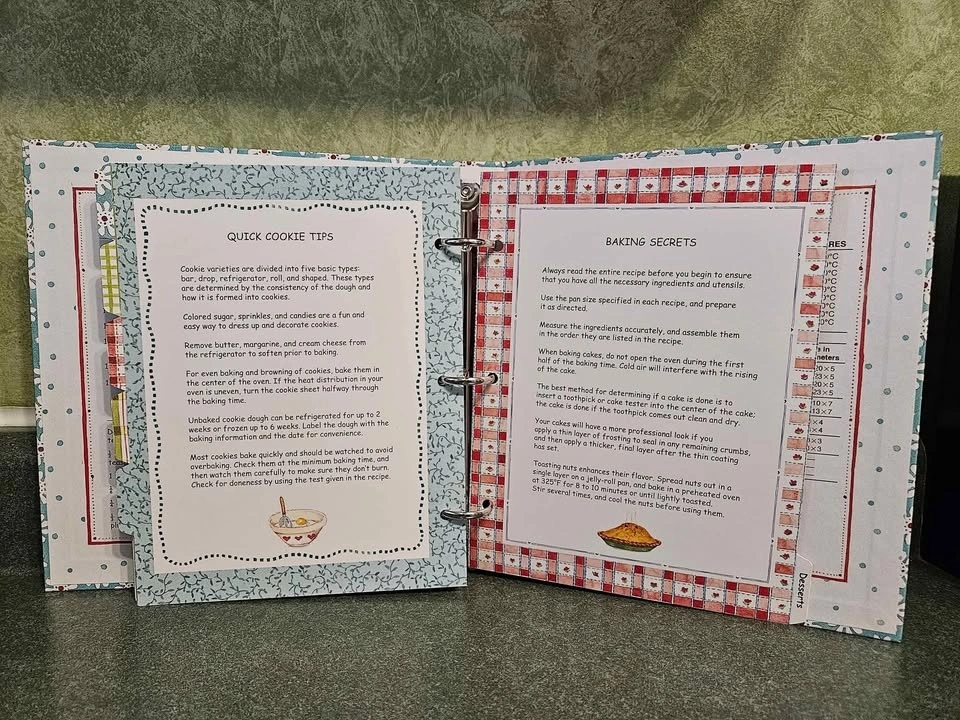 QUICK COOKIE TIPS
Cookie varieties are divided into five basic types:
bar, drop, refrigerator, roll, and shaped. These types
are determined by the consistency of the dough and
how it is formed into cookies.
Colored sugar, sprinkles, and candies are a fun and
easy way to dress up and decorate cookies.
Remove butter, margarine, and cream cheese from
the refrigerator to soften prior to baking.
For even baking and browning of cookies, bake them in
the center of the oven. If the heat distribution in your
oven is uneven, turn the cookie sheet halfway through
the baking time.
Unbaked cookie dough can be refrigerated for up to 2
weeks or frozen up to 6 weeks. Label the dough with the
baking information and the date for convenience.
Most cookies bake quickly and should be watched to avoid
overbaking. Check them at the minimum baking time, and
then watch them carefully to make sure they don't burn.
Check for doneness by using the test given in the recipe.
BAKING SECRETS
Always read the entire recipe before you begin to ensure
that you have all the necessary ingredients and utensils.
Use the pan size specified in each recipe, and prepare
it as directed.
Measure the ingredients accurately, and assemble them
in the order they are listed in the recipe.
When baking cakes, do not open the oven during the first
half of the baking time. Cold air will interfere with the rising
of the cake.
The best method for determining if a cake is done is to
insert a toothpick or cake tester into the center of the cake;
the cake is done if the toothpick comes out clean and dry.
Your cakes will have a more professional look if you
apply a thin layer of frosting to seal in any remaining crumbs,
and then apply a thicker, final layer after the thin coating
has set.
Toasting nuts enhances their flavor. Spread nuts out in a
single layer on a jelly-roll pan, and bake in a preheated oven
at 325°F for 8 to 10 minutes or until lightly toasted.
Stir several times, and cool the nuts before using them.
Desserts